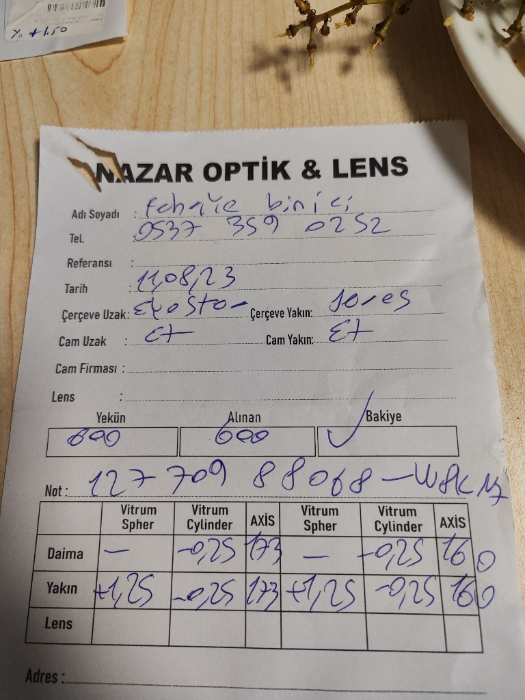 +1.50
NAZAR OPTİK & LENS
Adı Soyadı : binici
Tel. : 0537 359 0252
Referansı :
Tarih : 11,08,23
Çerçeve Uzak: Çerçeve Yakın:
Cam Uzak : Et Cam Yakın: Et
Cam Firması :
Lens :
Yekün Alınan Bakiye
600 600 ✓
Not : 127 709 88068
Vitrum Spher Vitrum Cylinder AXİS Vitrum Spher Vitrum Cylinder AXİS
Daima — -0,25 173 — -0,25 160
Yakın +1,25 -0,25 173 +1,25 -0,25 160
Lens
Adres :